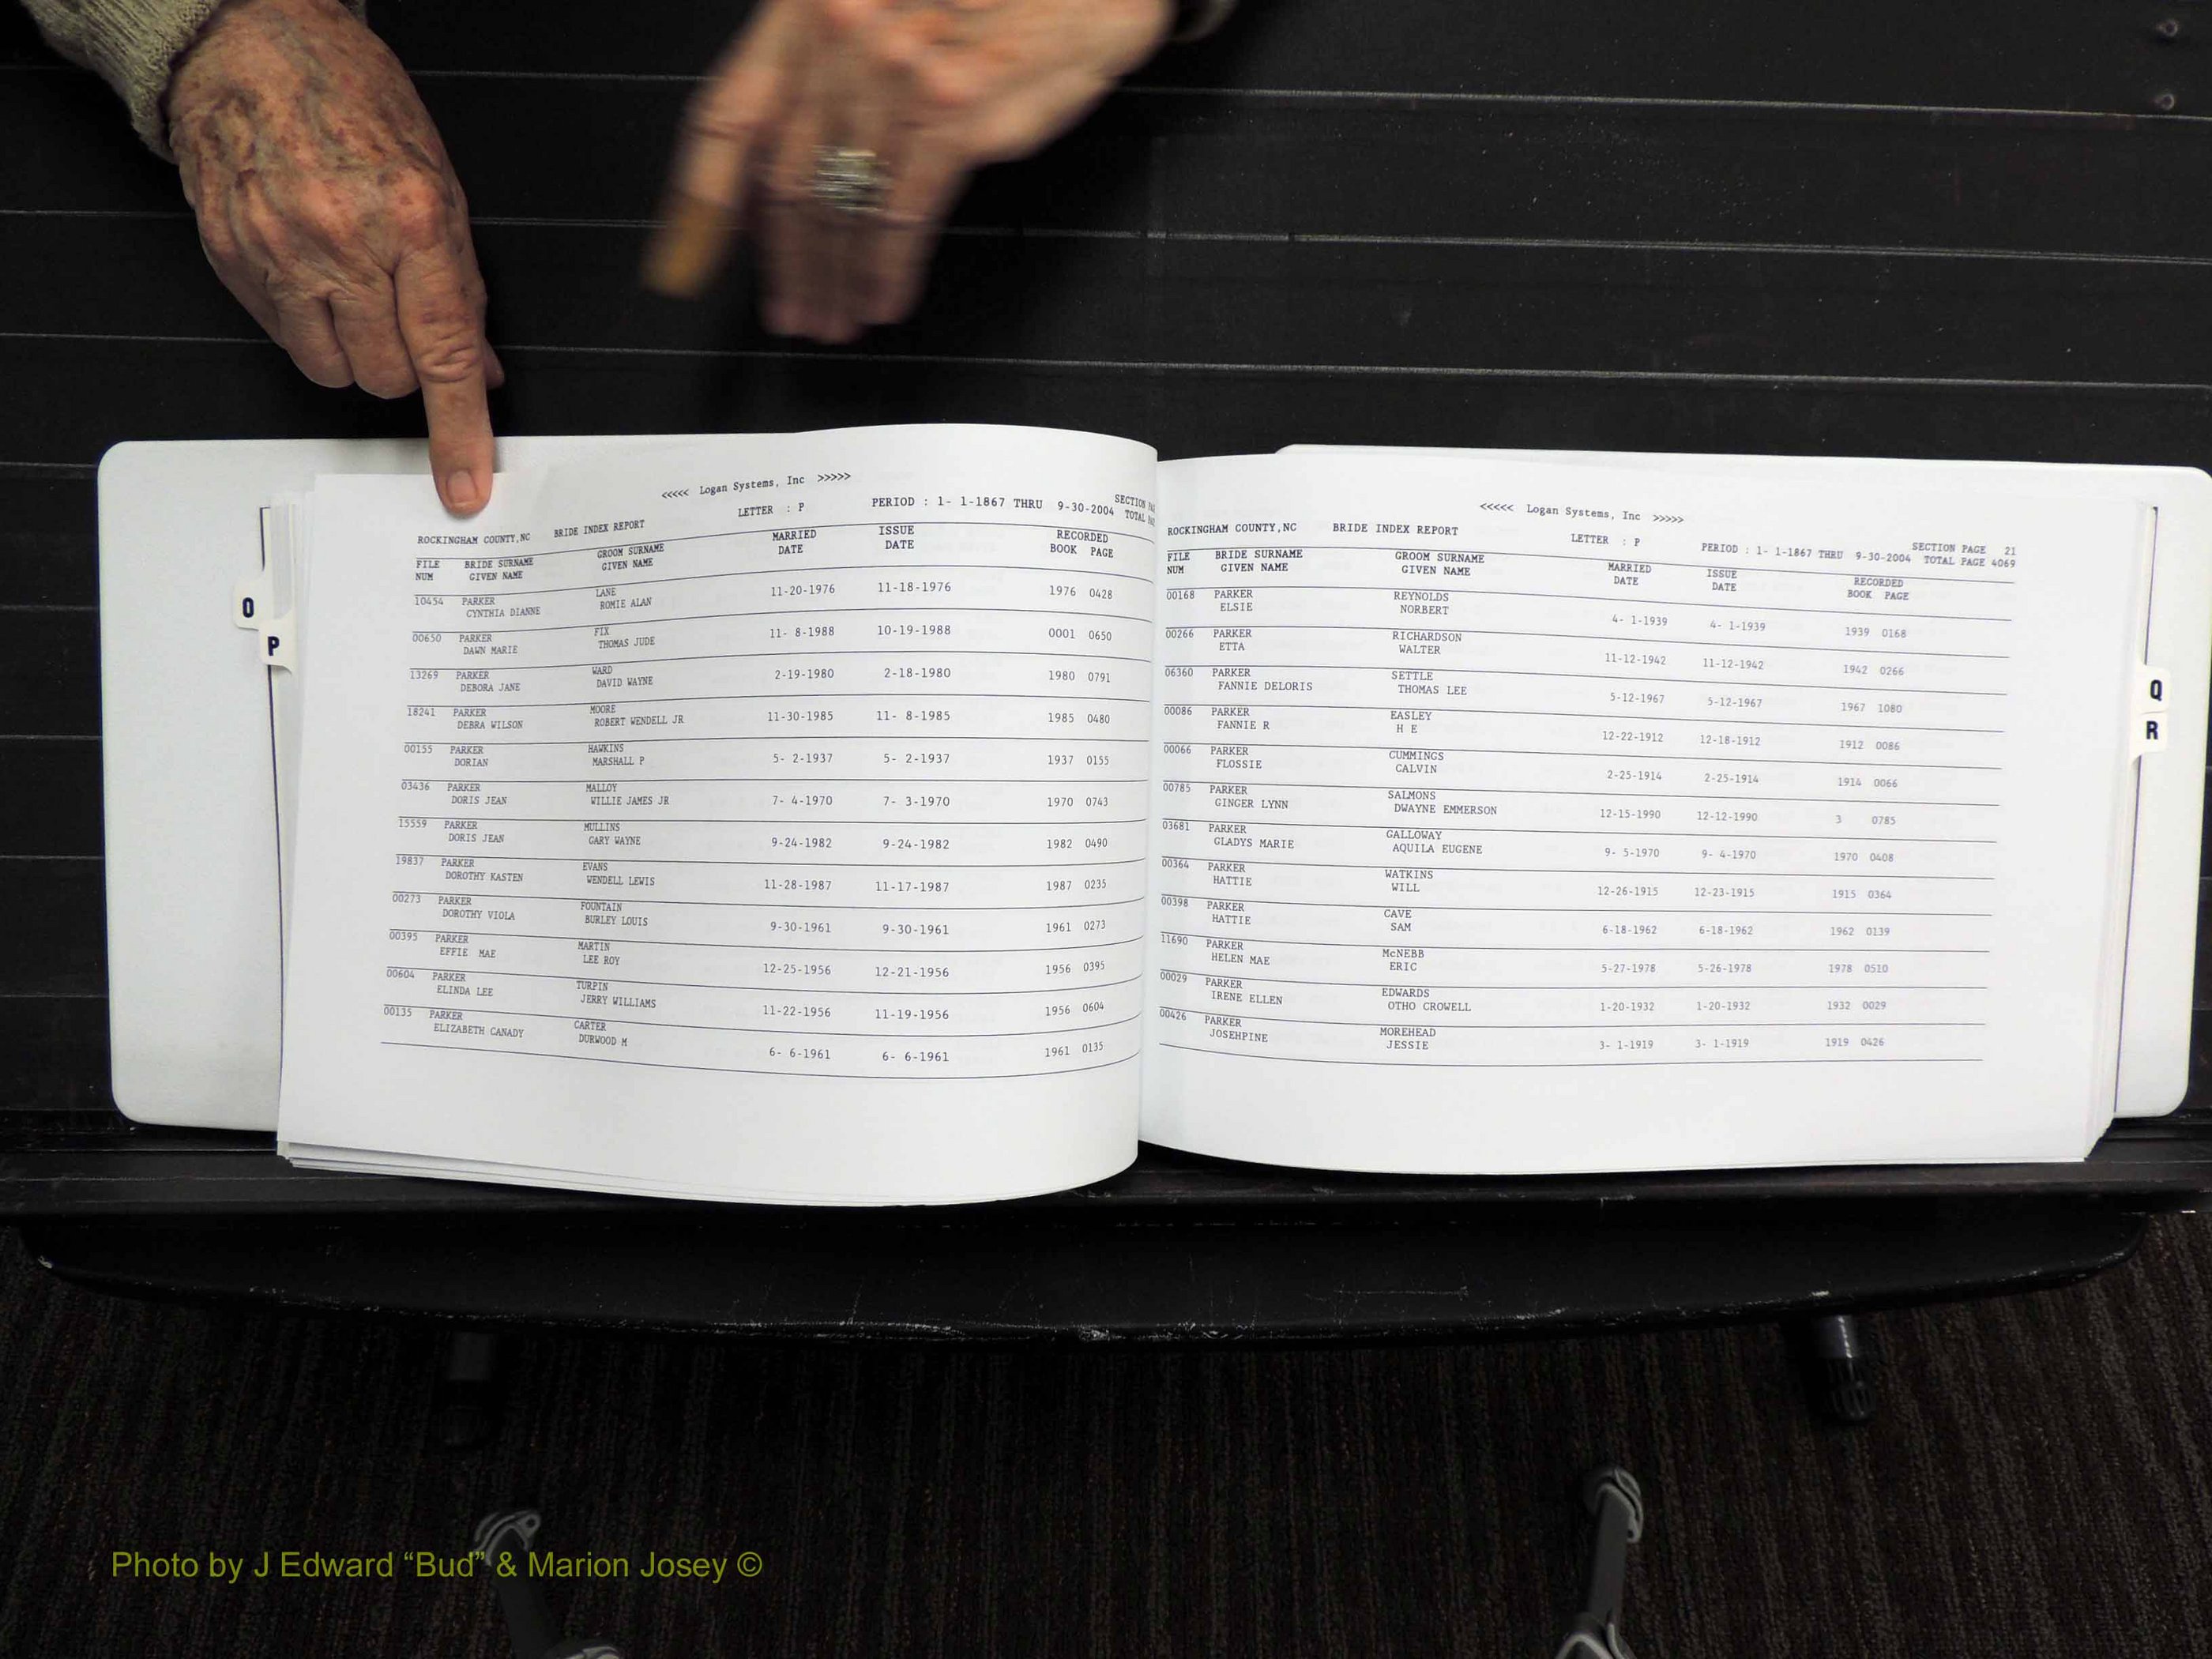 <<<<< Logan Systems, Inc >>>>>
ROCKINGHAM COUNTY,NC BRIDE INDEX REPORT LETTER : P PERIOD : 1- 1-1867 THRU 9-30-2004 SECTION
TOTAL
FILE BRIDE SURNAME GROOM SURNAME MARRIED ISSUE RECORDED
NUM GIVEN NAME GIVEN NAME DATE DATE BOOK PAGE
10454 PARKER LANE 11-20-1976 11-18-1976 1976 0428
CYNTHIA DIANNE ROMIE ALAN
00650 PARKER FIX 11- 8-1988 10-19-1988 0001 0650
DAWN MARIE THOMAS JUDE
13269 PARKER WARD 2-19-1980 2-18-1980 1980 0791
DEBORA JANE DAVID WAYNE
18241 PARKER MOORE 11-30-1985 11- 8-1985 1985 0480
DEBRA WILSON ROBERT WENDELL JR
00155 PARKER HAWKINS 5- 2-1937 5- 2-1937 1937 0155
DORIAN MARSHALL P
03436 PARKER MALLOY 7- 4-1970 7- 3-1970 1970 0743
DORIS JEAN WILLIE JAMES JR
15559 PARKER MULLINS 9-24-1982 9-24-1982 1982 0490
DORIS JEAN GARY WAYNE
19837 PARKER EVANS 11-28-1987 11-17-1987 1987 0235
DOROTHY KASTEN WENDELL LEWIS
00273 PARKER FOUNTAIN 9-30-1961 9-30-1961 1961 0273
DOROTHY VIOLA BURLEY LOUIS
00395 PARKER MARTIN 12-25-1956 12-21-1956 1956 0395
EFFIE MAE LEE ROY
00604 PARKER TURPIN 11-22-1956 11-19-1956 1956 0604
ELINDA LEE JERRY WILLIAMS
00135 PARKER CARTER 6- 6-1961 6- 6-1961 1961 0135
ELIZABETH CANADY DURWOOD M
O
P
<<<<< Logan Systems, Inc >>>>>
ROCKINGHAM COUNTY,NC BRIDE INDEX REPORT LETTER : P PERIOD : 1- 1-1867 THRU 9-30-2004 SECTION PAGE 21
TOTAL PAGE 4069
FILE BRIDE SURNAME GROOM SURNAME MARRIED ISSUE RECORDED
NUM GIVEN NAME GIVEN NAME DATE DATE BOOK PAGE
00168 PARKER REYNOLDS 4- 1-1939 4- 1-1939 1939 0168
ELSIE NORBERT
00266 PARKER RICHARDSON 11-12-1942 11-12-1942 1942 0266
ETTA WALTER
06360 PARKER SETTLE 5-12-1967 5-12-1967 1967 1080
FANNIE DELORIS THOMAS LEE
00086 PARKER EASLEY 12-22-1912 12-18-1912 1912 0086
FANNIE R H E
00066 PARKER CUMMINGS 2-25-1914 2-25-1914 1914 0066
FLOSSIE CALVIN
00785 PARKER SALMONS 12-15-1990 12-12-1990 3 0785
GINGER LYNN DWAYNE EMMERSON
03681 PARKER GALLOWAY 9- 5-1970 9- 4-1970 1970 0408
GLADYS MARIE AQUILA EUGENE
00364 PARKER WATKINS 12-26-1915 12-23-1915 1915 0364
HATTIE WILL
00398 PARKER CAVE 6-18-1962 6-18-1962 1962 0139
HATTIE SAM
11690 PARKER McNEBB 5-27-1978 5-26-1978 1978 0510
HELEN MAE ERIC
00029 PARKER EDWARDS 1-20-1932 1-20-1932 1932 0029
IRENE ELLEN OTHO CROWELL
00426 PARKER MOREHEAD 3- 1-1919 3- 1-1919 1919 0426
JOSEHPINE JESSIE
Q
R
Photo by J Edward “Bud” & Marion Josey ©